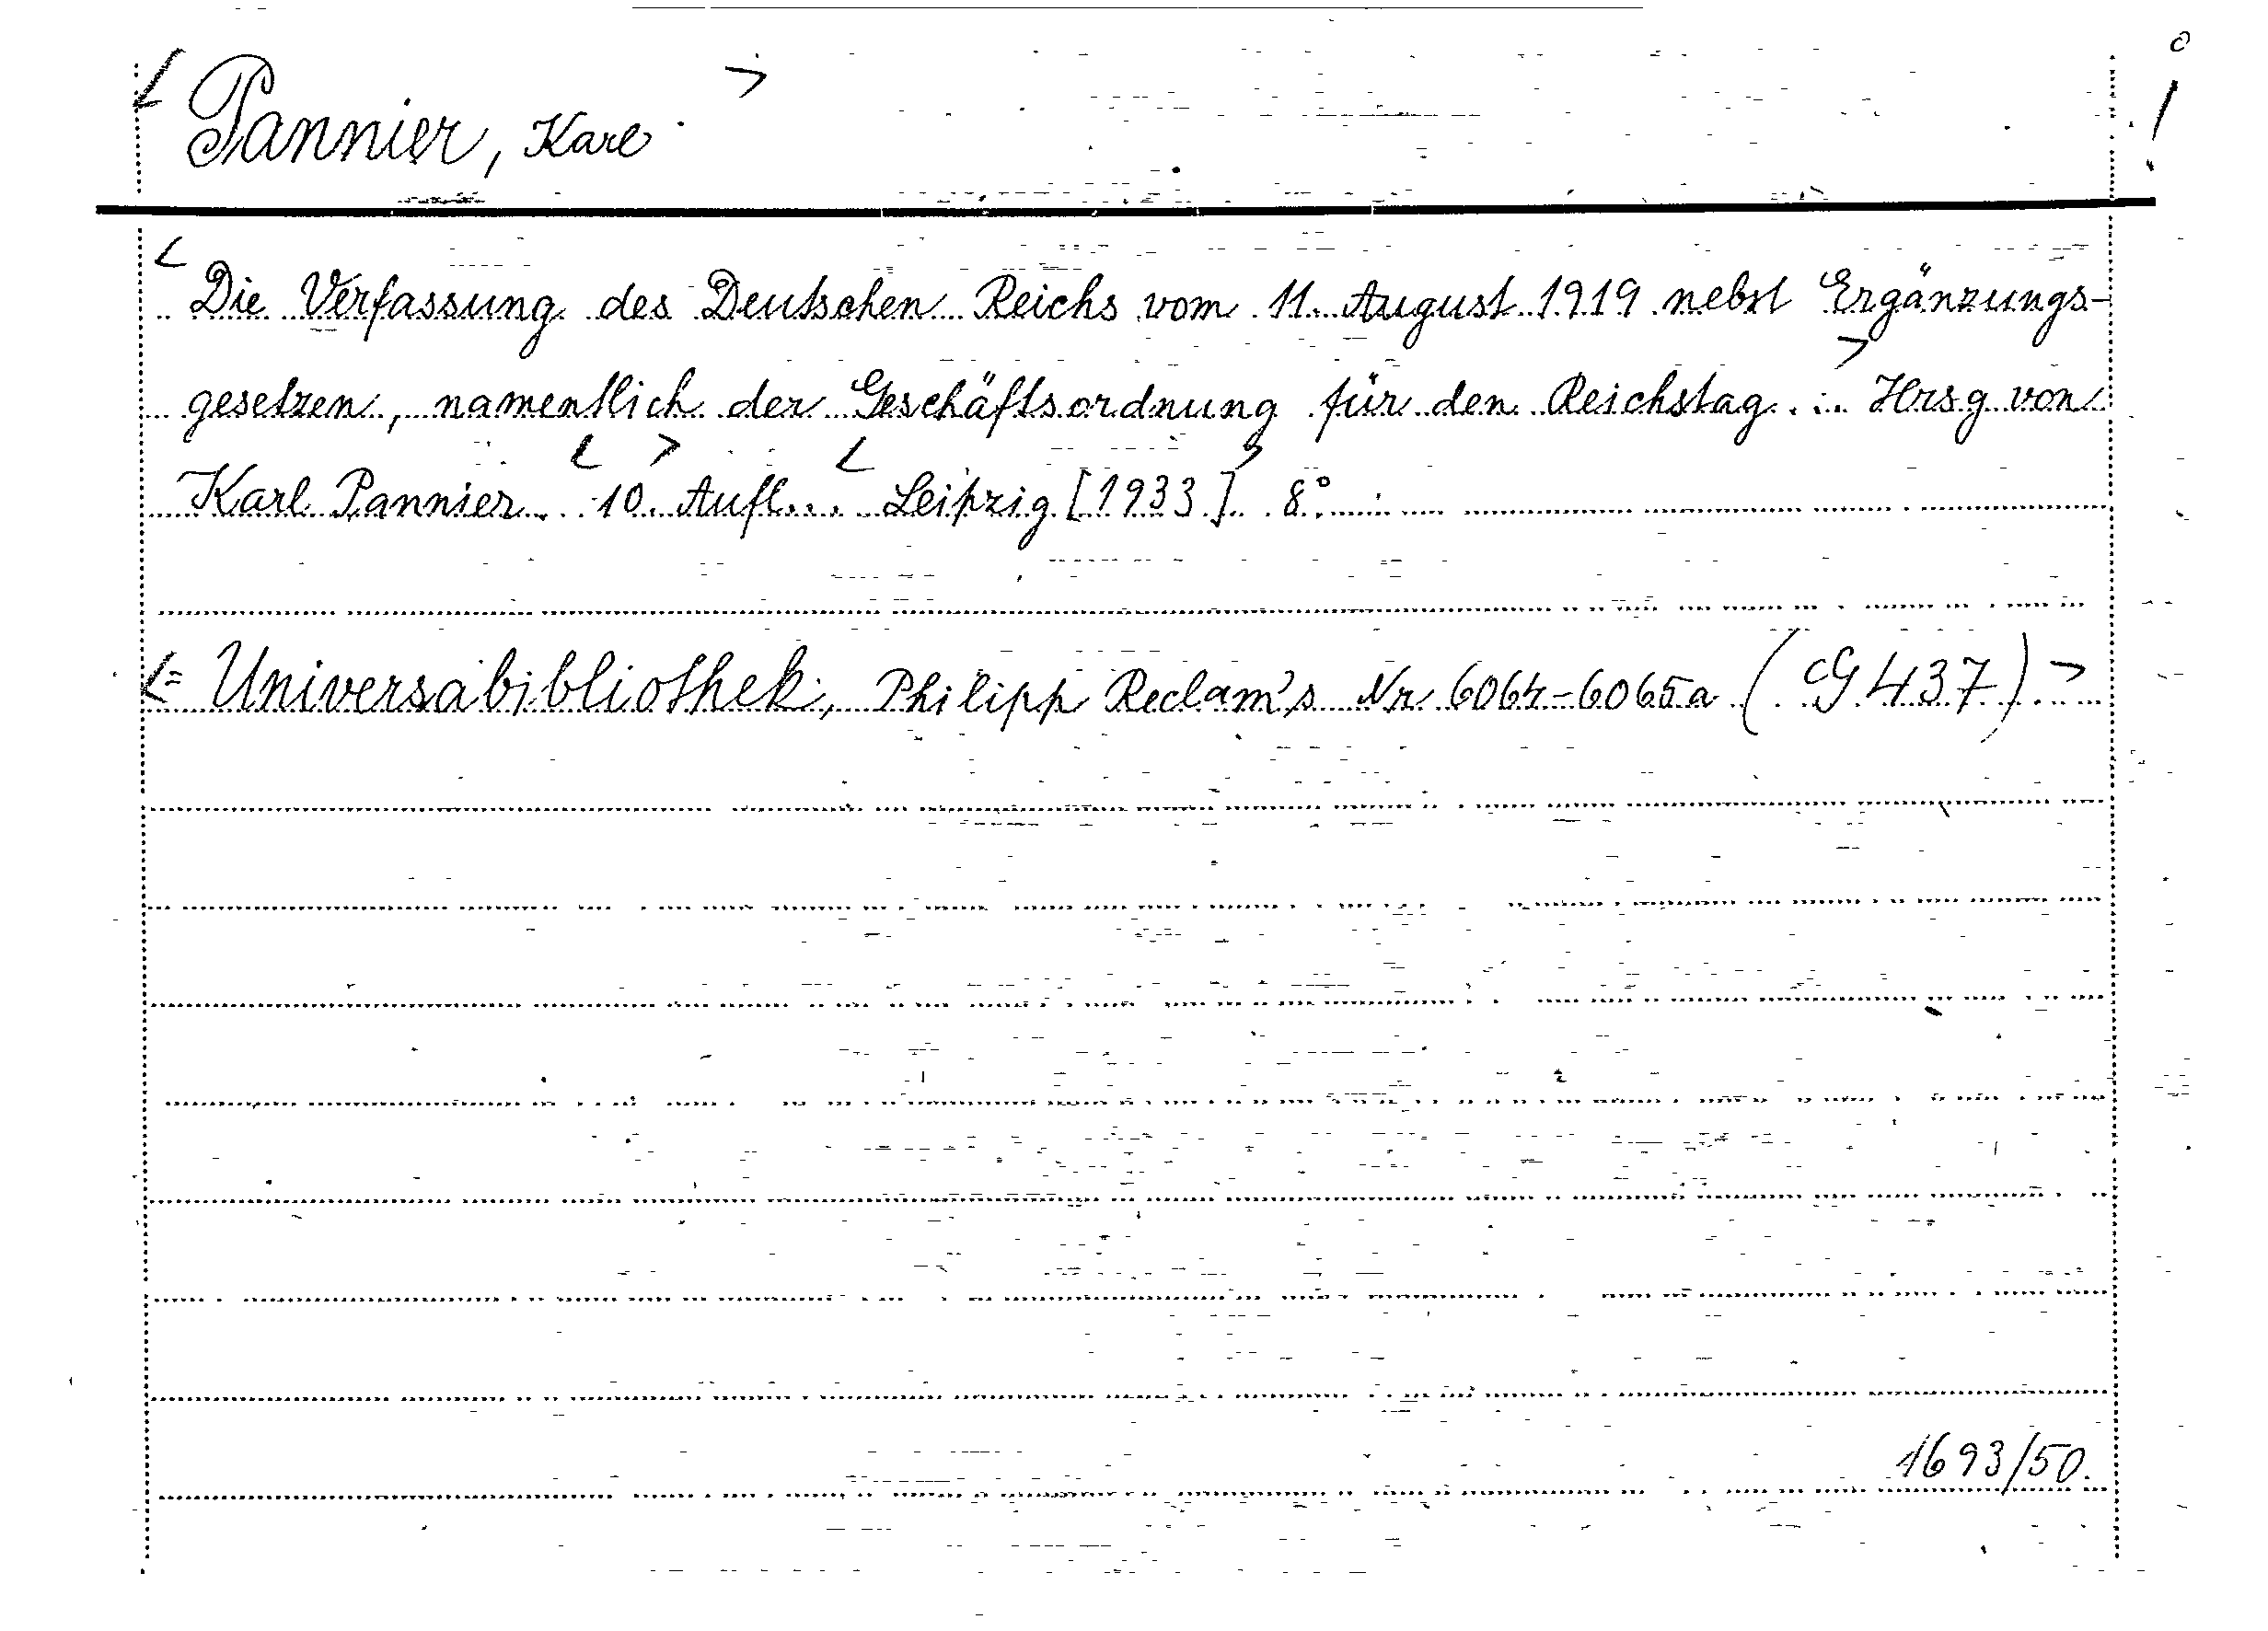 Pannier, Karl
Die Verfassung des Deutschen Reichs vom 11. August 1919 nebst Ergänzungs-
gesetzen, namentlich der Geschäftsordnung für den Reichstag... Hrsg von
Karl Pannier. 10. Aufl... Leipzig [1933] 8°
= Universabibliothek, Philipp Reclam's Nr 6064-6065a (G 437).
1693/50.